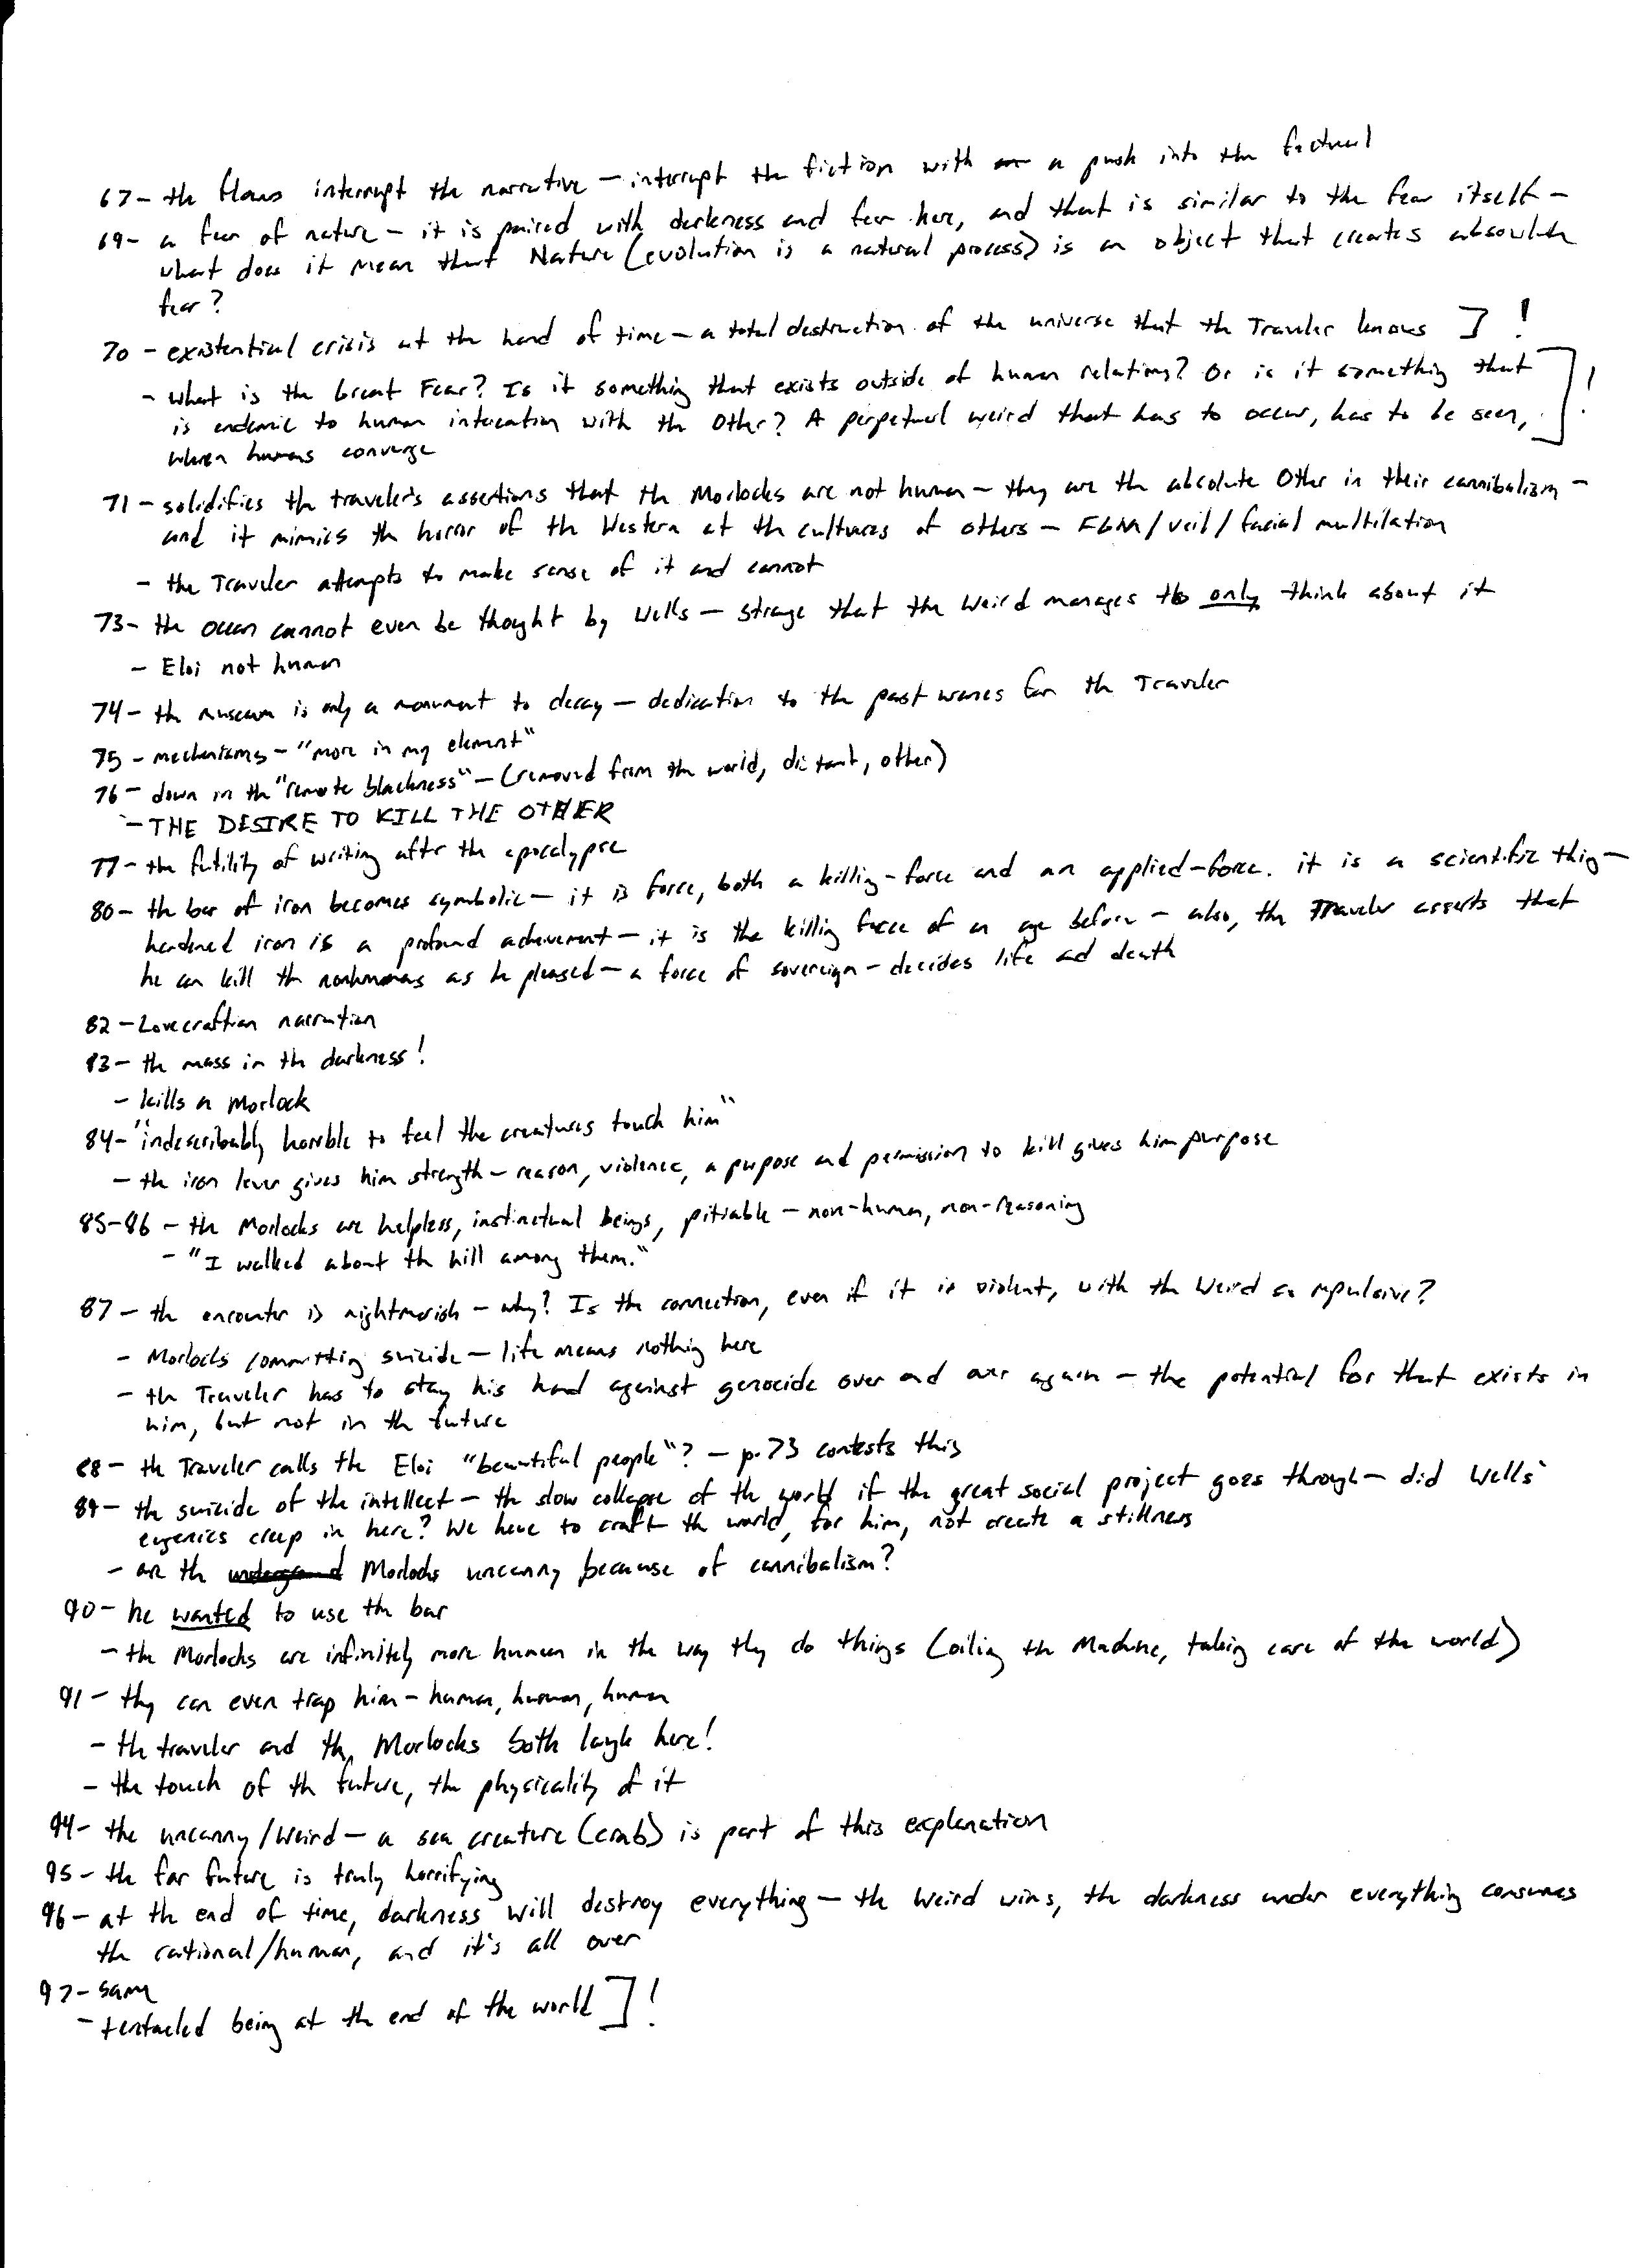 67 - the flows interrupt the narrative - interrupt the fiction with a push into the factual
69 - a fear of nature - it is paired with darkness and fear here, and that is similar to the fear itself -
what does it mean that Nature (evolution is a natural process) is an object that creates absolute
fear?
70 - existential crisis at the hand of time - a total destruction of the universe that the Traveler knows ] !
- what is the Great Fear? Is it something that exists outside of human relations? Or is it something that
is endemic to human interaction with the Other? A perpetual weird that has to occur, has to be seen, ] !
when humans converge
71 - solidifies the traveler's assertions that the Morlocks are not human - they are the absolute Other in their cannibalism -
and it mimics the horror of the Western at the cultures of others - FGM/veil/facial multilation
- the Traveler attempts to make sense of it and cannot
73 - the ocean cannot even be thought by Wells - strange that the Weird manages to only think about it
- Eloi not human
74 - the museum is only a monument to decay - dedication to the past wanes for the Traveler
75 - mechanisms - "more in my element"
76 - down in the "remote blackness" - (removed from the world, distant, other)
- THE DESIRE TO KILL THE OTHER
77 - the futility of writing after the apocalypse
80 - the bar of iron becomes symbolic - it is force, both a killing-force and an applied-force. it is a scientific thing -
hardened iron is a profound achievement - it is the killing force of an age before - also, the Traveler asserts that
he can kill the nonhumans as he pleased - a force of sovereign - decides life and death
82 - Lovecraftian narration
83 - the mass in the darkness!
- kills a Morlock
84 - "indescribably horrible to feel the creatures touch him"
- the iron lever gives him strength - reason, violence, a purpose and permission to kill gives him purpose
85-86 - the Morlocks are helpless, instinctual beings, pitiable - non-human, non-reasoning
- "I walked about the hill among them."
87 - the encounter is nightmarish - why? Is the connection, even if it is violent, with the Weird so repulsive?
- Morlocks committing suicide - life means nothing here
- the Traveler has to stay his hand against genocide over and over again - the potential for that exists in
him, but not in the future
88 - the Traveler calls the Eloi "beautiful people"? - p. 73 contests this
89 - the suicide of the intellect - the slow collapse of the world if the great social project goes through - did Wells'
eugenics creep in here? We have to craft the world, for him, not create a stillness
- are the Morlocks uncanny because of cannibalism?
90 - he wanted to use the bar
- the Morlocks are infinitely more human in the way they do things (oiling the Machine, taking care of the world)
91 - they can even trap him - human, human, human
- the traveler and the Morlocks both laugh here!
- the touch of the future, the physicality of it
94 - the uncanny/Weird - a sea creature (crab) is part of this explanation
95 - the far future is truly horrifying
96 - at the end of time, darkness will destroy everything - the Weird wins, the darkness under everything consumes
the rational/human, and it's all over
97 - same
- tentacled being at the end of the world ] !